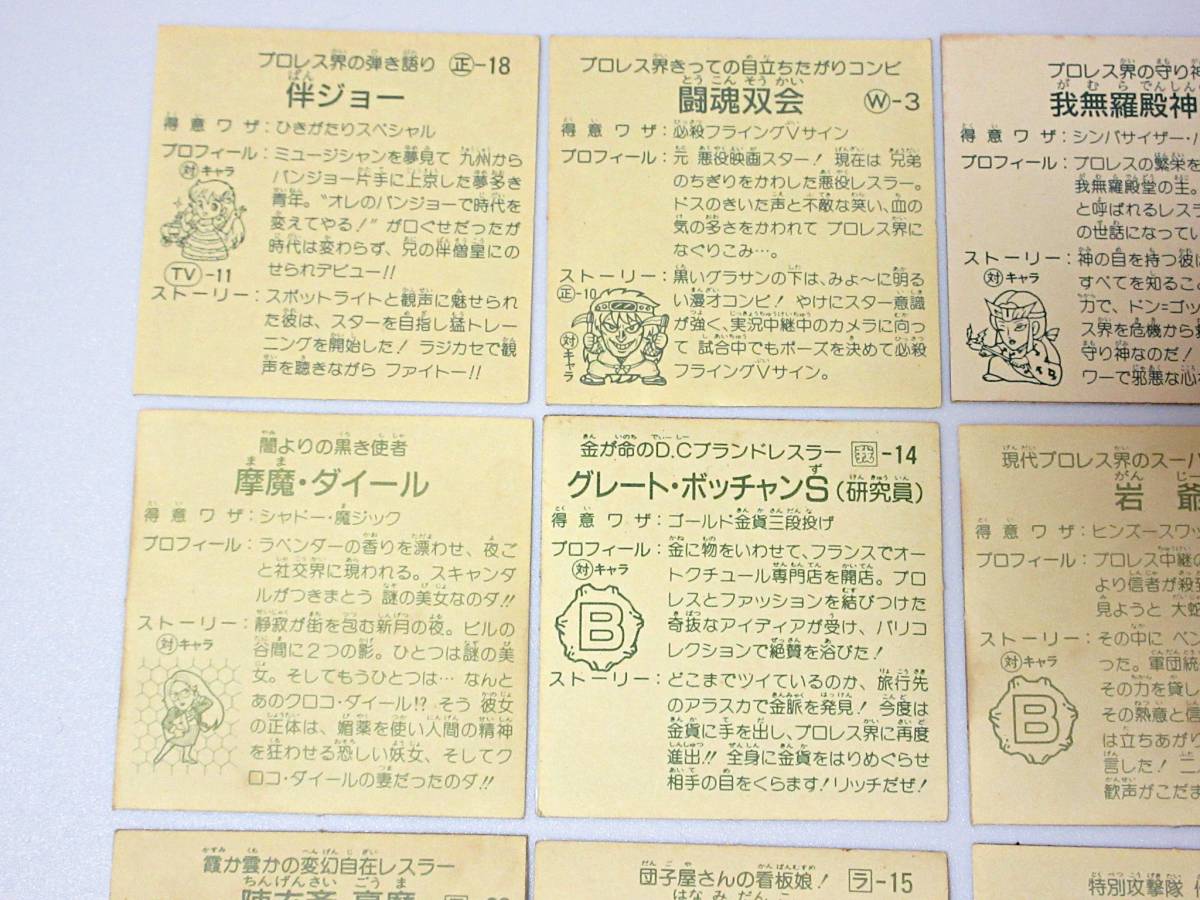 プロレス界の弾き語り ㊣-18
伴ジョー
得意ワザ：ひきがたりスペシャル
プロフィール：ミュージシャンを夢見て 九州から
バンジョー片手に上京した夢多き
青年。“オレのバンジョーで時代を
変えてやる！”が口ぐせだったが
時代は変わらず、兄の伴僧皇にの
せられデビュー!!
対キャラ
TV-11
ストーリー：スポットライトと観声に魅せられ
た彼は、スターを目指し猛トレー
ニングを開始した！ ラジカセで観
声を聴きながら ファイトー!!
プロレス界きっての目立ちたがりコンビ
闘魂双会 Ⓦ-3
得意ワザ：必殺フライングVサイン
プロフィール：元 悪役映画スター！ 現在は 兄弟
のちぎりをかわした悪役レスラー。
ドスのきいた声と不敵な笑い、血の
気の多さをかわれて プロレス界に
なぐりこみ…。
ストーリー：黒いグラサンの下は、みょ〜に明る
い漫オコンビ！ やけにスター意識
が強く、実況中継中のカメラに向っ
て 試合中でもポーズを決めて必殺
フライングVサイン。
㊣-10
対キャラ
プロレス界の守り神
我無羅殿神
得意ワザ：シンバサイザー・
プロフィール：プロレスの繁栄を
我無羅殿堂の主。
と呼ばれるレスラ
の世話になってい
ストーリー：神の目を持つ彼は
対キャラ
すべてを知るこ
力で、ドン=ゴッ
ス界を危機から
守り神なのだ！
ワーで邪悪な心
闇よりの黒き使者
摩魔・ダイール
得意ワザ：シャドー・魔ジック
プロフィール：ラベンダーの香りを漂わせ、夜ご
と社交界に現われる。スキャンダ
ルがつきまとう 謎の美女なのダ!!
ストーリー：静寂が街を包む新月の夜。ビルの
対キャラ
谷間に2つの影。ひとつは謎の美
女。そしてもうひとつは… なんと
あのクロコ・ダイール!? そう 彼女
の正体は、媚薬を使い人間の精神
を狂わせる恐しい妖女、そしてク
ロコ・ダイールの妻だったのダ!!
金が命のD.Cブランドレスラー -14
グレート・ボッチャンS（研究員）
得意ワザ：ゴールド金貨三段投げ
プロフィール：金に物をいわせて、フランスでオー
対キャラ
トクチュール専門店を開店。プロ
レスとファッションを結びつけた
奇抜なアイディアが受け、パリコ
レクションで絶賛を浴びた！
B
ストーリー：どこまでツイているのか、旅行先
のアラスカで金脈を発見！ 今度は
金貨に手を出し、プロレス界に再度
進出!! 全身に金貨をはりめぐらせ
相手の目をくらます！リッチだぜ！
現代プロレス界のスーパ
岩爺
得意ワザ：ヒンズースワッ
プロフィール：プロレス中継の
より信者が殺
見ようと 大
ストーリー：その中に ベン
対キャラ
った。軍団統
その力を貸し
その熱意と信
は立ちあがり
言した！ 二
歓声がこだま
B
霞か雲かの変幻自在レスラー
団子屋さんの看板娘！ ラ-15
特別攻撃隊